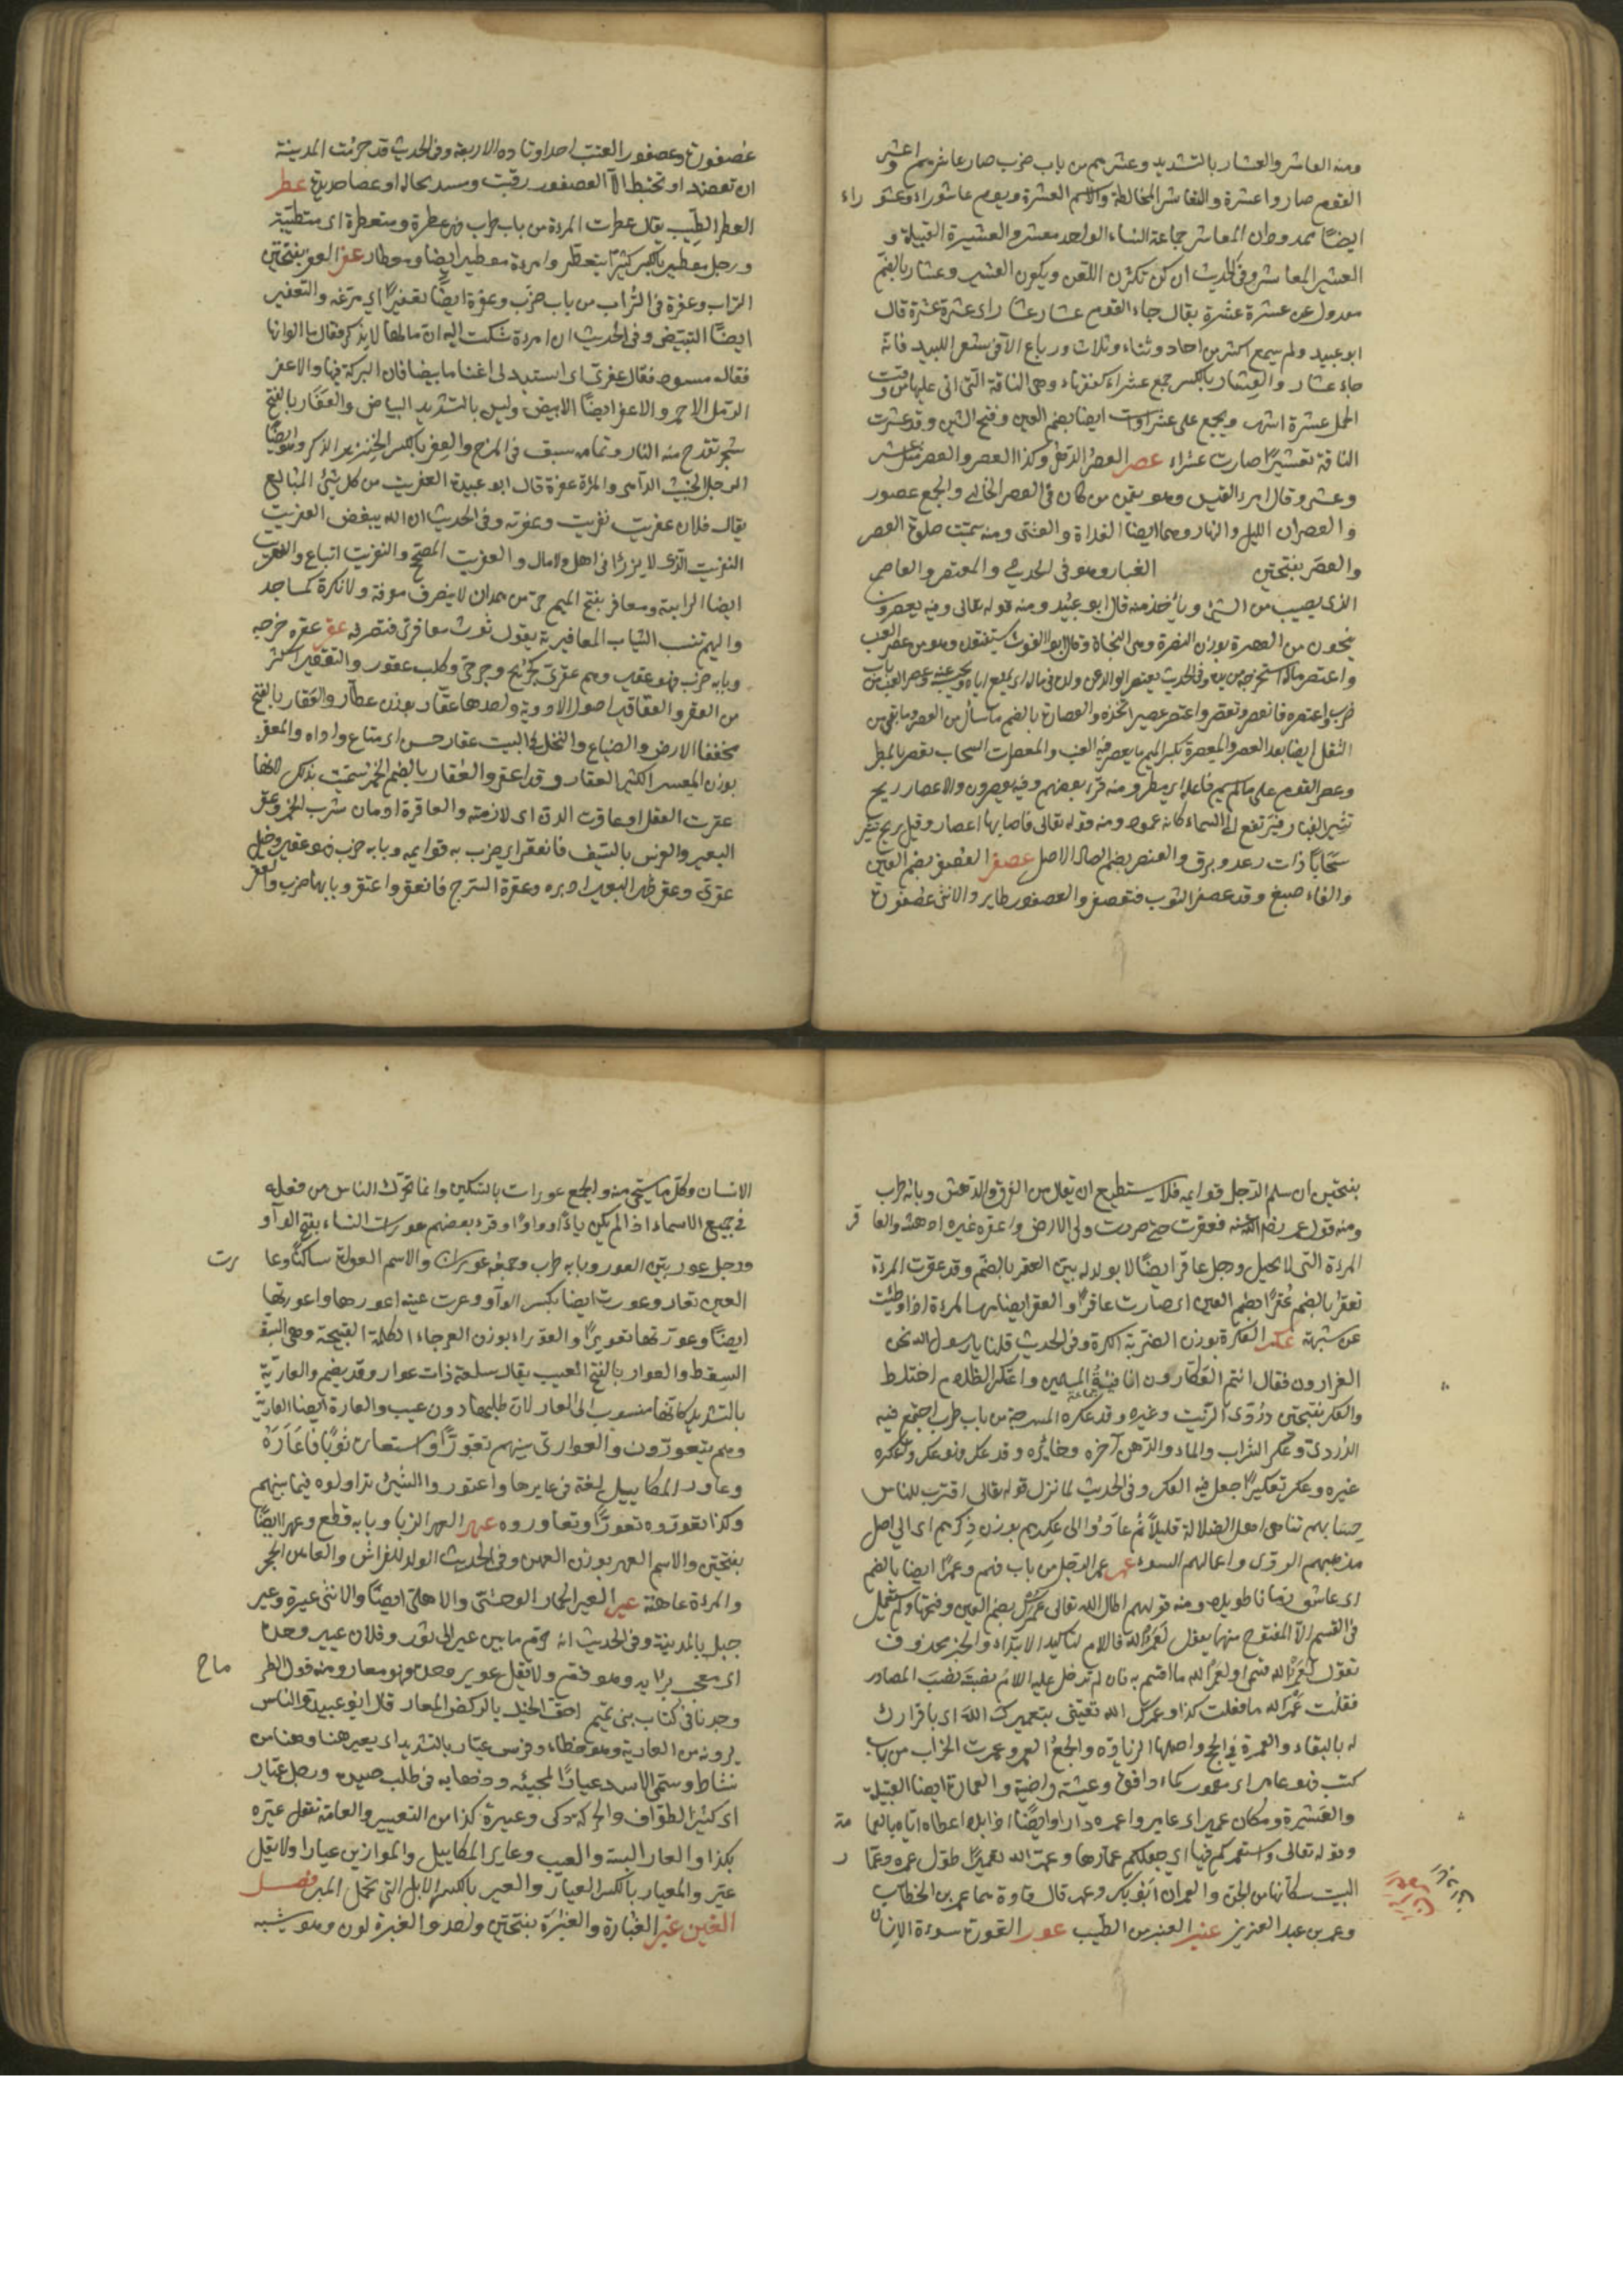 ومنه العاشر والعشار بالتشديد وعشرهم من باب ضرب صار عاشرهم واعشر
القوم صاروا عشرة والتعاشر المخالطة والاسم العشرة ويوم عاشوراء وعشوراء
ايضا ممدودان المعاشر جماعة النساء الواحد معشر والعشيرة القبيلة و
العشير المعاشر وفى الحديث ان كن تكثرن اللعن ويكفرن العشير وعشار بالضم
معدول عن عشرة عشرة يقال جاء القوم عشار عشار اى عشرة عشرة قال
ابو عبيد ولم يسمع اكثر من احاد وثناء وثلاث ورباع الا فى شعر
جاء عشار والعشار بالكسر جمع عشراء كفقهاء وهى الناقة التى اتى عليها من وقت
الحمل عشرة اشهر ويجمع على عشراوات ايضا بضم العين وفتح الشين وقد عشرت
الناقة تعشيرا صارت عشراء عصر العصر الدهر وكذا العصر والعصر مثل عشر
وعشر وقال امرء القيس وهل ينعمن من كان فى العصر الخالى والجمع عصور
والعصران الليل والنهار وهما ايضا الغداة والعشى ومنه سميت صلوة العصر
والعصر بفتحتين الغبار وهو فى الحديث والمعتصر والعاصر
الذى يصيب من الشئ ويأخذ منه قال ابو عبيد ومنه قوله تعالى وفيه يعصرون
ينجون من العصرة بوزن النصرة وهى النجاة وقال ابو الغوث يستغلون وهو من عصر العنب
واعتصر ماله استخرجه من يده وفى الحديث يعتصر الوالد على ولده فى ماله اى يمنعه اياه ويحبسه عنه وعصر العنب من باب
ضرب واعتصره فانعصر وتعصر واعتصر عصيرا اتخذه والعصارة بالضم ما سال من العصر وما بقى من
الثفل ايضا بعد العصر والمعصرة بكسر الميم ما يعصر فيه العنب والمعصرات السحاب تعصر بالمطر
وعصر القوم على ما لم يسم فاعله اى مطروا ومنه قرء بعضهم وفيه يعصرون والاعصار ريح
تثير الغبار فيرتفع الى السماء كانه عمود ومنه قوله تعالى فاصابها اعصار وقيل ريح تثير
سحابا ذات رعد وبرق والعنصر بضم الصاد الاصل عصفر العصفر بضم العين
والفاء صبغ وقد عصفر الثوب فتعصفر والعصفور طاير والانثى عصفورة
عصفورة وعصفور القتب احد اوتاده الاربعة وفى الحديث قد حرمت المدينة
ان تعضد او تخبط الا لعصفور قتب ومسد محالة او عصا حديدة عطر
العطر الطيب يقال عطرت المرءة من باب طرب فهى عطرة ومتعطرة اى متطيبة
ورجل معطير بالكسر كثير التعطر وامرءة معطير ايضا ومعطار عفر العفر بفتحتين
التراب وعفره فى التراب من باب ضرب وعفره ايضا تعفيرا اى مرغه والتعفير
ايضا التبييض وفى الحديث ان امرءة شكت اليه ان مالها لا يزكو فقال ما الوانها
فقالت سود فقال عفرى اى استبدلى اغناما بيضا فان البركة فيها والاعفر
الرمل الاحمر والاعفر ايضا الابيض وليس بالشديد البياض والعفار بالفتح
شجر تقدح منه النار وتمامه سبق فى المرخ والعفر بالكسر الخنزير الذكر وهو ايضا
الرجل الخبيث الداهى والمرءة عفرة قال ابو عبيدة العفريت من كل شئ المبالغ
يقال فلان عفريت نفريت وعفرية وفى الحديث ان الله يبغض العفريت
النفريت الذى لا يرزأ فى اهل ولا مال والعفريت المصحح والنفريت اتباع والعفريت
ايضا الداهية ومعافر بفتح الميم حى من همدان لا ينصرف معرفة ولا نكرة كمساجد
واليهم تنسب الثياب المعافرية يقول ثوب معافرى فتصرفه عقر عقره جرحه
وبابه ضرب فهو عقير وهم عقرى كجريح وجرحى وكلب عقور والتعقير اكثر
من العقر والعقاقير اصول الادوية واحدها عقار بوزن عطار والعقار بالفتح
مخففا الارض والضياع والنخل وفى البيت عقار حسن اى متاع واداة والمعقر
بوزن المعسر الكثير العقار وقد اعقر والعقار بالضم الخمر سميت بذلك لانها
عقرت العقل او عاقرت الدن اى لازمته والمعاقرة ادمان شرب الخمر وعقر
البعير والفرس بالسيف فانعقر اى ضرب به قوايمه وبابه ضرب فهو عقير وخيل
عقرى وعقر ظهر البعير ادبره وعقره السرج فانعقر واعتقر وبابهما ضرب والعقر
بفتحتين ان تسلم الرجل قوايمه فلا يستطيع ان يقاتل من الفرق والدهش وبابه طرب
ومنه قول عمر رضى الله عنه فعقرت حتى خررت الى الارض واعقره غيره ادهشه والعاقر
المرءة التى لا تحبل ورجل عاقر ايضا لا يولد له بين العقر بالضم وقد عقرت المرءة
تعقر بالضم عقرا بضم العين اى صارت عاقرا والعقر ايضا مهر المرءة اذا وطئت
عن شبهة عكر العكرة بوزن الضربة الكرة وفى الحديث قلنا يا رسول الله نحن
الفرارون فقال انتم العكارون انا فئة المسلمين واعتكر الظلام اختلط
والعكر بفتحتين دردى الزيت وغيره وقد عكرت المسرجة من باب طرب اجتمع فيه
الدردى وعكر الشراب والماء والدهن آخره وخاثره وقد عكر فهو عكر وعكره
غيره وعكر تعكيرا جعل فيه العكر وفى الحديث لما نزل قوله تعالى اقترب للناس
حسابهم تناهى اهل الضلالة قليلا ثم عادوا الى عكرهم بوزن ذكرهم اى الى اصل
مذهبهم الردى واعمالهم السوء عمر عمر الرجل من باب فهم وعمرا ايضا بالضم
اى عاش زمانا طويلا ومنه قولهم اطال الله تعالى عمرك بضم العين وفتحها ولم يستعمل
فى القسم الا المفتوح منهما يقول لعمر الله فاللام لتاكيد الابتداء والخبر محذوف
تقول لعمر الله قسمى او لعمر الله ما اقسم به فان لم تدخل عليه اللام نصبته نصب المصادر
فقلت عمر الله ما فعلت كذا وعمرك الله تعنى بتعميرك الله اى باقرارك
له بالبقاء والعمرة فى الحج واصلها الزيارة والجمع العمر وعمرت الخراب من باب
كتب فهو عامر اى معمور كماء دافق وعيشة راضية والعمارة ايضا القبيلة
والعشيرة ومكان عمير اى عامر واعمره دارا وايضا ابلا اعطاه اياه
وقوله تعالى واستعمركم فيها اى جعلكم عمارها وعمره الله تعميرا طول عمره وعمار
البيت سكانها من الجن والعمران ابو بكر وعمر قال قتادة هما عمر بن الخطاب
وعمر بن عبد العزيز عنبر العنبر من الطيب عور العورة سوءة الانسان
الانسان وكل ما يستحى منه والجمع عورات بالتسكين وانما تحرك الثانى من فعلة
فى جميع الاسماء اذا لم يكن ياء او واوا وقرء بعضهم عورات النساء بفتح الواو
ورجل اعور بين العور وبابه طرب وجمعه عوران والاسم العورة ساكنا وعارت
العين تعار وعورت ايضا بكسر الواو وعرت عينه اعورها واعورتها
ايضا وعورتها تعويرا والعوراء بوزن العرجاء الكلمة القبيحة وهى
السقطة والعوار بالفتح العيب يقال سلعة ذات عوار وقد يضم والعارية
بالتشديد كانها منسوب الى العار لان طلبها عار وعيب والعارة ايضا العارية
وهم يتعورون العوارى بينهم تعورا واستعاره ثوبا فاعاره
وعاور المكاييل لغة فى عايرها واعتوروا الشئ تداولوه فيما بينهم
وكذا تعوروه تعورا وتعاوروه عهر العهر الزنا وبابه قطع وعهر ايضا
بفتحتين والاسم العهر بوزن العهن وفى الحديث الولد للفراش والعاهر الحجر
والمرءة عاهرة عير العير الحمار الوحشى والاهلى ايضا والانثى عيرة وعير
جبل بالمدينة وفى الحديث انه حرم ما بين عير الى ثور وفلان عيير وحده
اى معجب برايه وهو ذم ولا تقل عوير وحده وهو معار ومنه قول الطرماح
وجدنا فى كتاب بنى تميم احق الخيل بالركض المعار قال ابو عبيدة والناس
يرونه من العارية وهو خطاء وفرس عيار بالتشديد اى يعير هنا وهنا من
نشاطه وسمى الاسد عيارا لمجيئه وذهابه فى طلب صيده ورجل عيار
اى كثير الطواف والحركة ذكى وعيره كذا من التعيير والعامة تقول عيره
بكذا والعار السبة والعيب وعاير المكاييل والموازين عيارا ولا تقل
عير والمعيار بالكسر العيار والعير بالكسر الابل التى تحمل الميرة فصل
الغين غبر الغبار والغبرة بفتحتين واحد والغبرة لون وهو شبيه